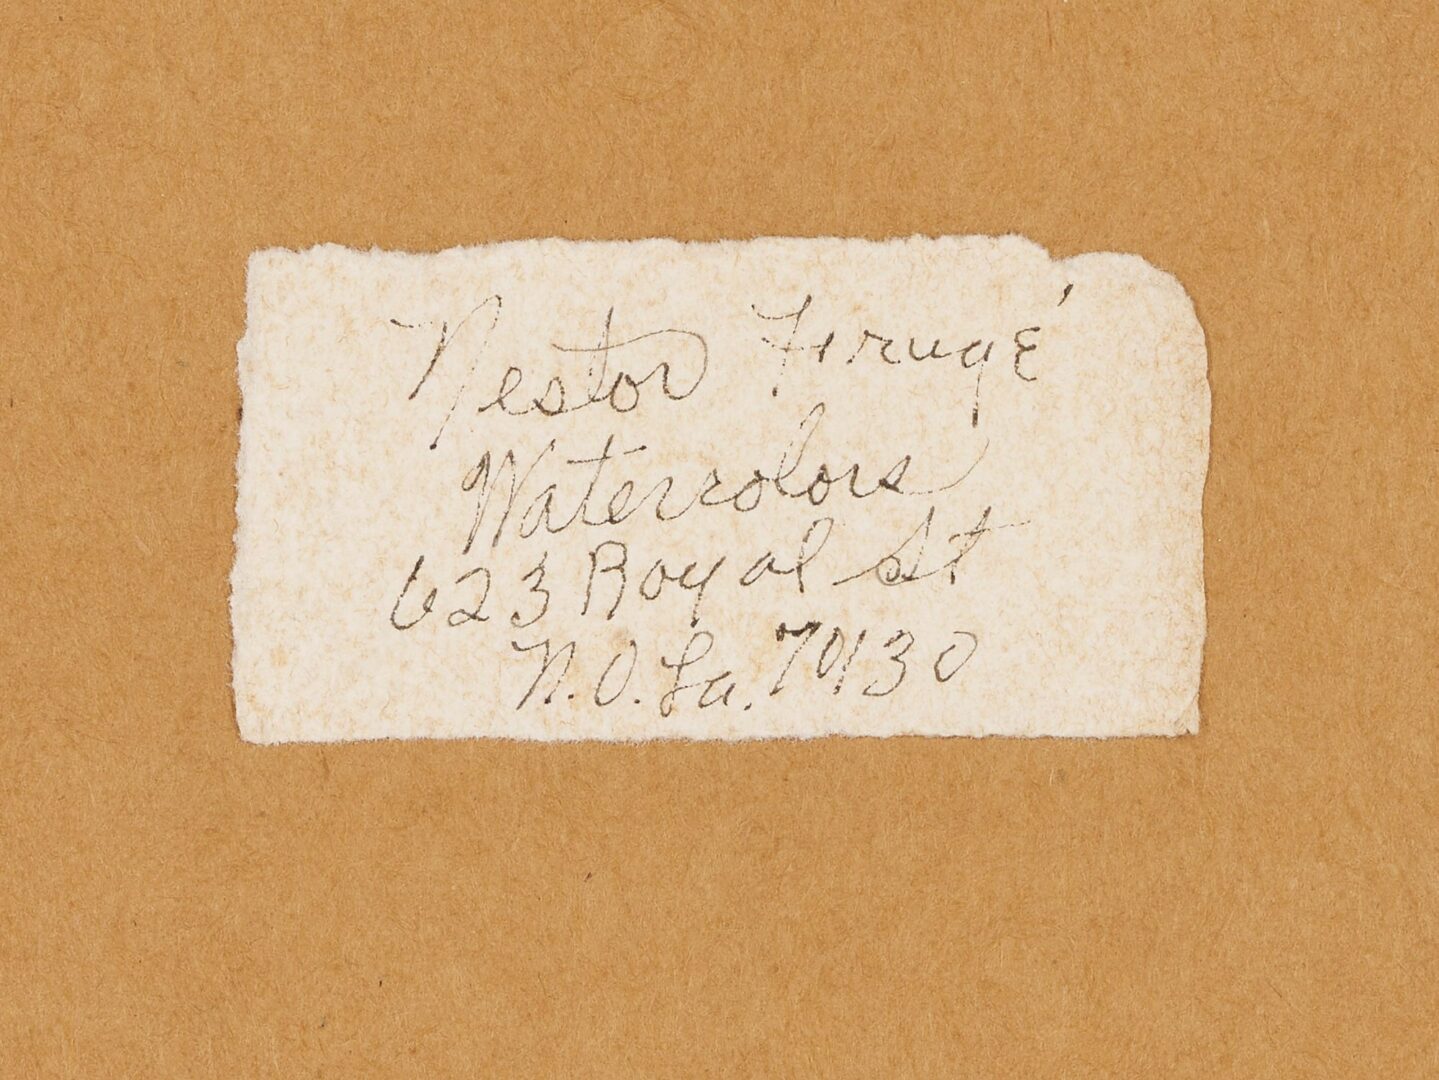 Nestor Frugé
Watercolors
623 Royal St
N.O. La. 70130